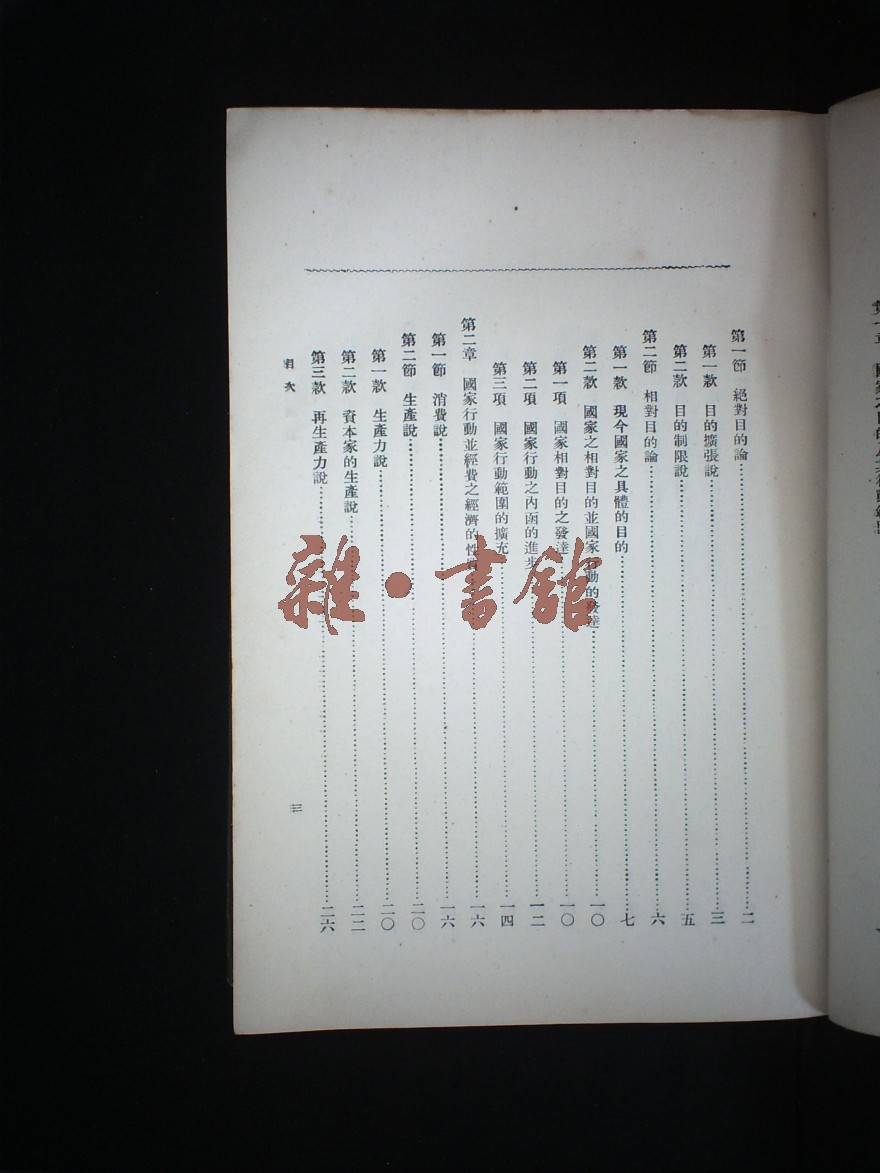 第一節　絕對目的論……二
第一款　目的擴張說……三
第二款　目的制限說……五
第二節　相對目的論……六
第一款　現今國家之具體的目的……七
第二款　國家之相對目的並國家行動的發達……一〇
第一項　國家相對目的之發達……一〇
第二項　國家行動之內函的進步……一二
第三項　國家行動範圍的擴充……一四
第二章　國家行動並經費之經濟的性質……一六
第一節　消費說……一六
第二節　生產說……二〇
第一款　生產力說……二〇
第二款　資本家的生產說……二二
第三款　再生產力說……二六
目次
三
雜·書館